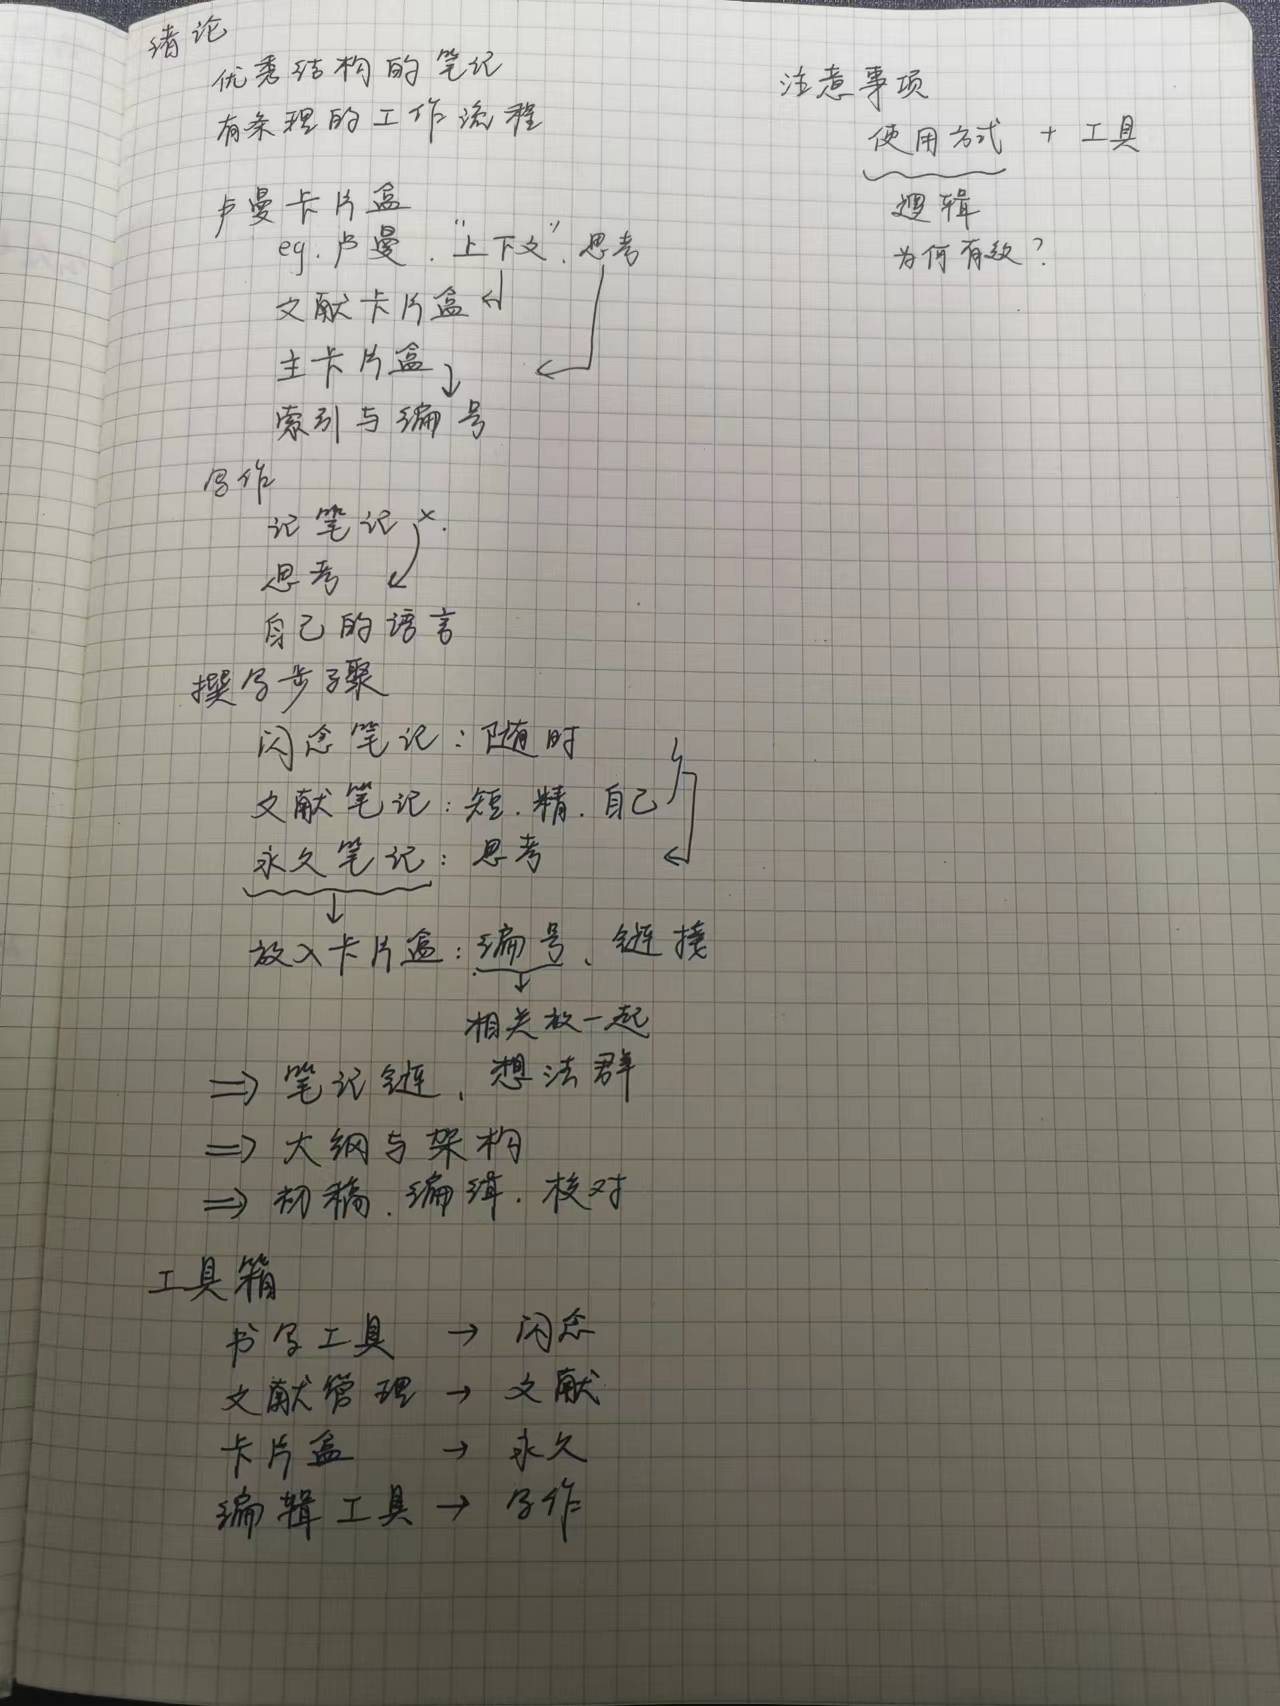 绪论
优秀结构的笔记
有条理的工作流程
卢曼卡片盒
eg. 卢曼. "上下文". 思考
文献卡片盒
主卡片盒
索引与编号
写作
记笔记 ×.
思考
自己的语言
撰写步骤
闪念笔记: 随时
文献笔记: 短. 精. 自己
永久笔记: 思考
放入卡片盒: 编号、链接
相关放一起
⇒ 笔记链、想法群
⇒ 大纲与架构
⇒ 初稿. 编缉. 校对
工具箱
书写工具 → 闪念
文献管理 → 文献
卡片盒 → 永久
编辑工具 → 写作
注意事项
使用方式 + 工具
逻辑
为何有效?